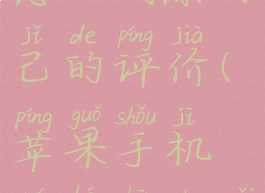 jǐ de píng jià
己的评价(
píng guǒ shǒu jī
苹果手机